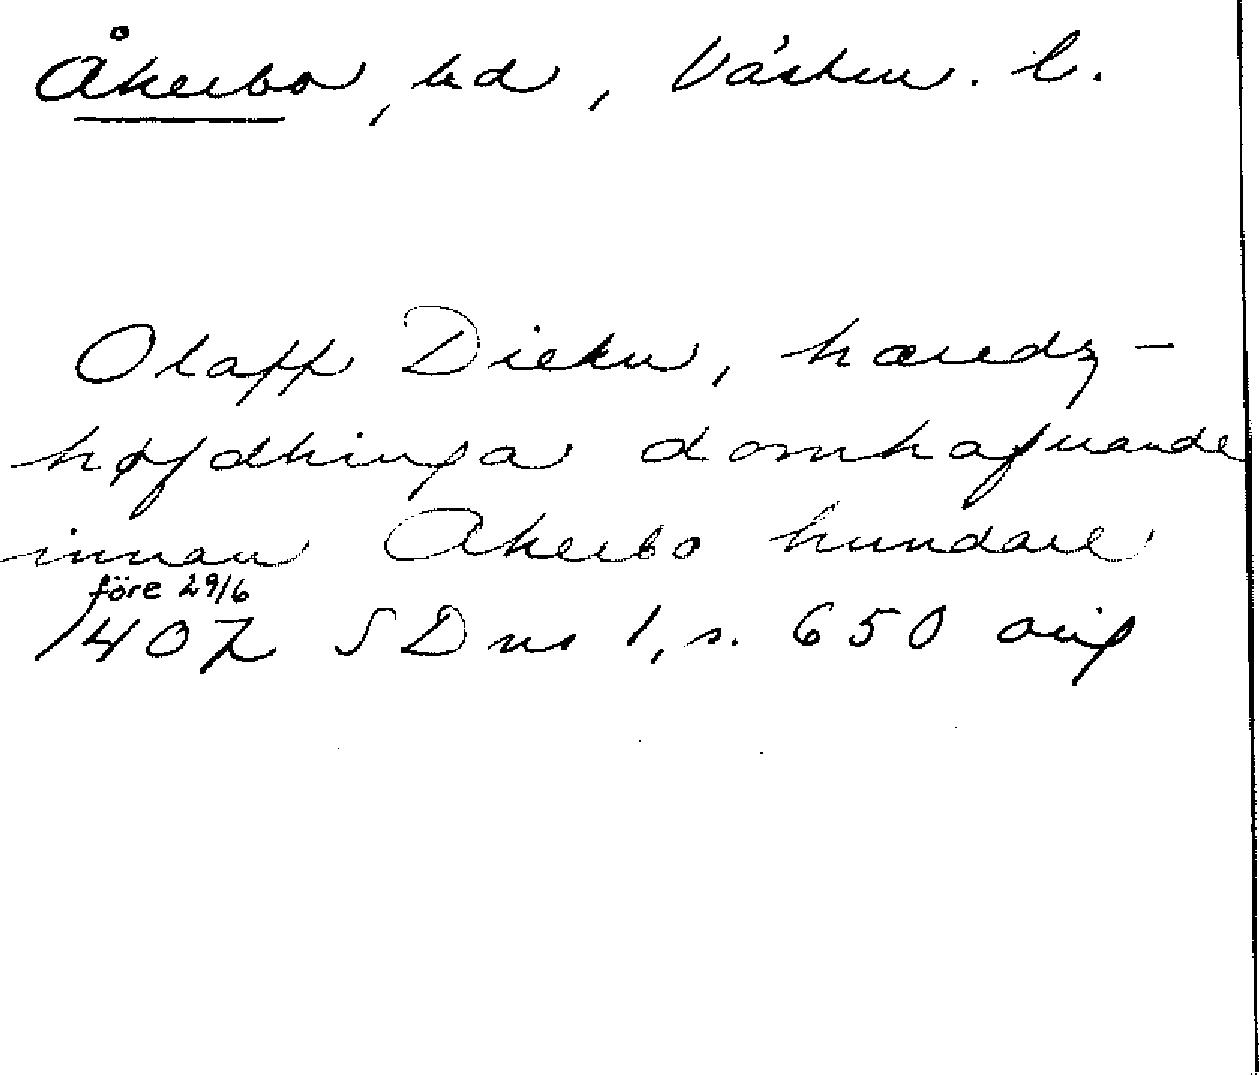 Åkerbo, hd, Västm. l.
Olaff Diekn, hæredz-
høfdhinga domhafuande
innan Akerbo hundare
före 29/6
1407 SD ns 1, s. 650 orig